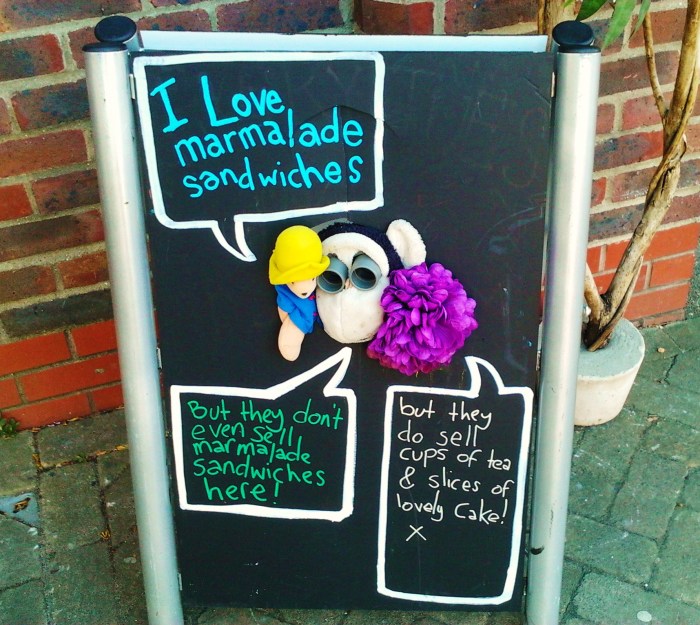 I Love
marmalade
sandwiches
But they don't
even sell
marmalade
sandwiches
here!
but they
do sell
cups of tea
& slices of
lovely cake!
x